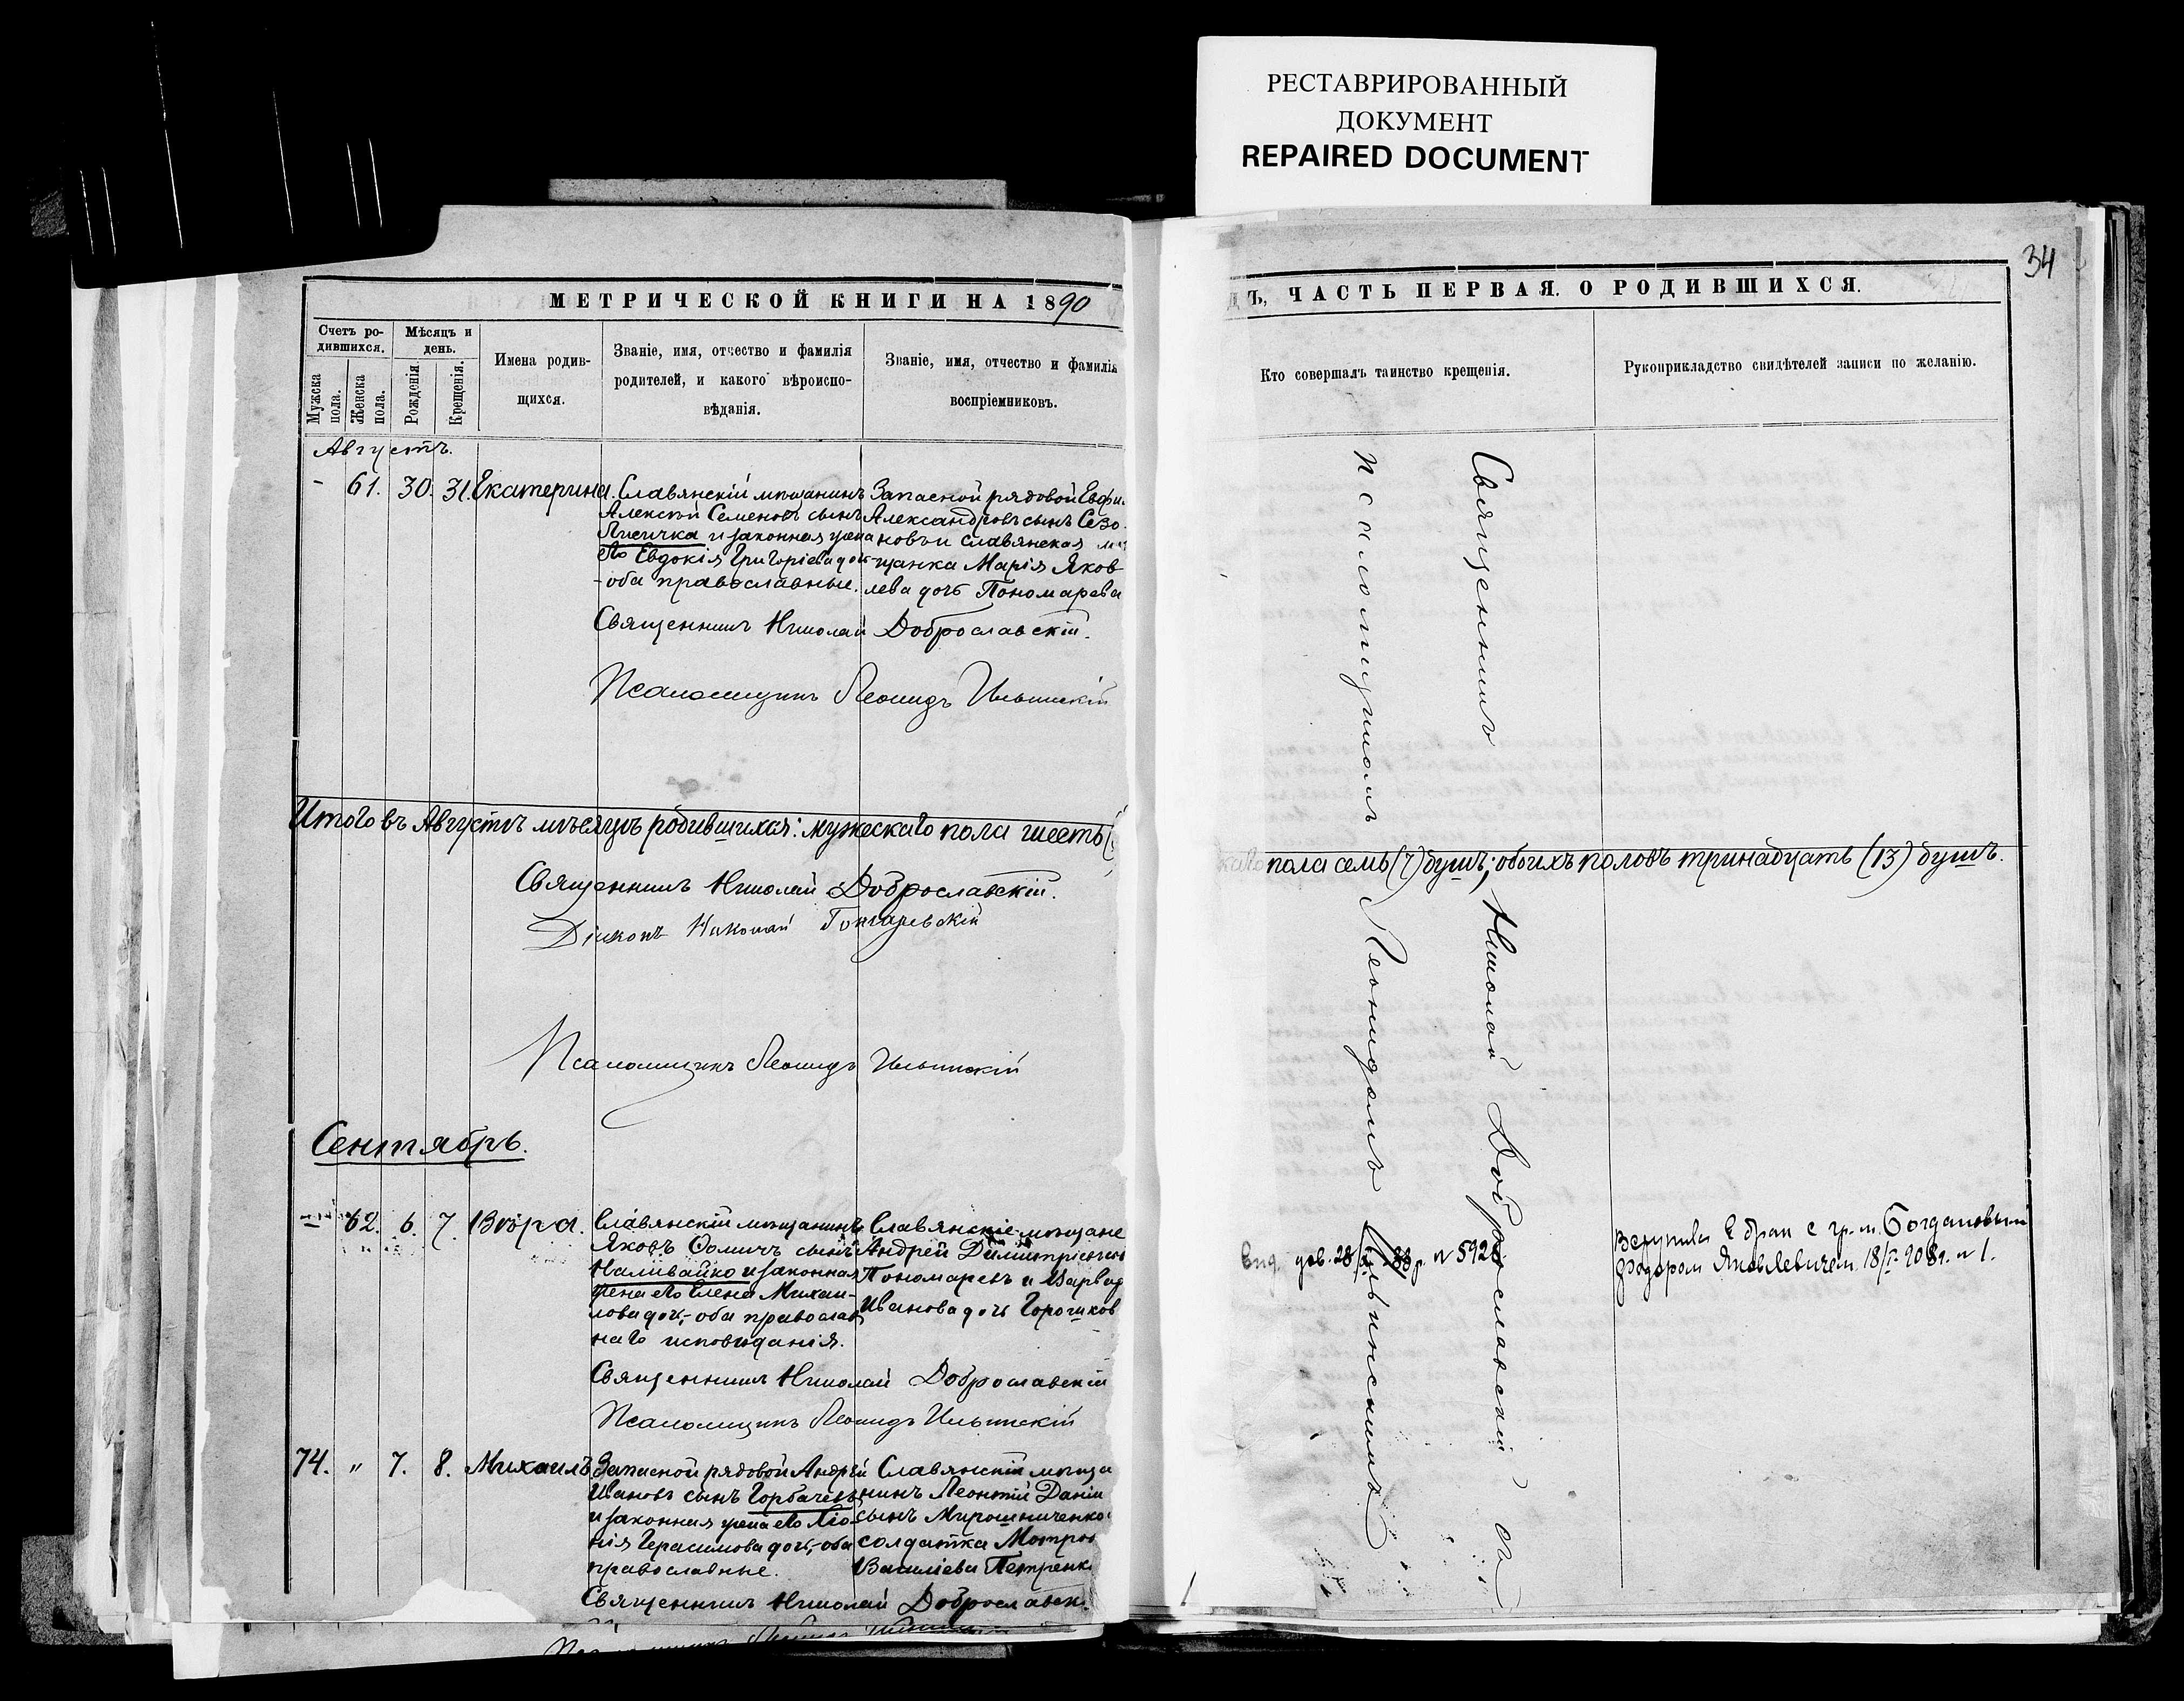 РЕСТАВРИРОВАННЫЙ
ДОКУМЕНТ
REPAIRED DOCUMENT
34
МЕТРИЧЕСКОЙ КНИГИ НА 1890
Счетъ ро-
дившихся.
Мужска пола.
Женска пола.
Мѣсяцъ и
день.
Рожденія.
Крещенія.
Имена родив-
шихся.
Званіе, имя, отчество и фамилія
родителей, и какого вѣроиспо-
вѣданія.
Званіе, имя, отчество и фамилія
воспріемниковъ.
Августъ.
- 61. 30. 31. Екатерина.
Славянскій мѣщанинъ
Алексѣй Семеновъ сынъ
Лисичка и законная жена
его Евдокія Григоріева доч-
оба православные.
Запасной рядовой Евфи
Александровъ сынъ Сезо-
новъ и славянская мѣ
щанка Марія Яков
лева дочь Пономарева
Священникъ Николай Доброславскій.
Псаломщикъ Леонидъ Ильинскій
Итого въ Августѣ мѣсяцѣ родившихся: мужескаго пола шесть (
Священникъ Николай Доброславскій.
Діаконъ Николай Гончаревскій
Псаломщикъ Леонидъ Ильинскій
Сентябрь.
62. 6. 7. Вѣра.
Славянскій мѣщанинъ
Яковъ Ѳомичъ сынъ
Наливайко и законная
жена его Елена Михаи-
лова доч,- оба православ
наго исповѣданія.
Славянскіе мѣщане
Андрей Димитріевъ
Пономаревъ и Варвар
Иванова дочь Горошков
Священникъ Николай Доброславскій
Псаломщикъ Леонидъ Ильинскій
74. " 7. 8. Михаилъ.
Запасной рядовой Андрей
Ивановъ сынъ Горбачевъ
и законная жена его Хіо-
нія Герасимова доч,- оба
православные.
Славянскій мѣща
нинъ Леонтій Даніи
сынъ Мирошниченко
солдатка Мотро
Василіева Петренк
Священникъ Николай Доброславск
ДЪ, ЧАСТЬ ПЕРВАЯ. О РОДИВШИХСЯ.
Кто совершалъ таинство крещенія.
Рукоприкладство свидѣтелей записи по желанію.
Священникъ Николай Доброславскій съ
псаломщикомъ Леонидомъ Ильинскимъ
каго пола семь (7) душъ; обоихъ половъ тринадцать (13) душъ.
Вступила в брак с гр-м. Богдановым
Федором Яковлевичем. 18/I-908г. №1.